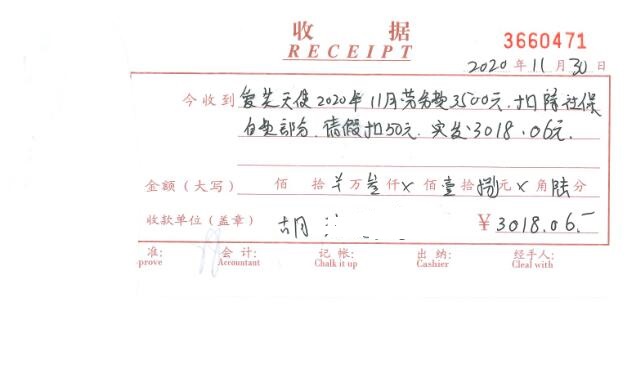 收 据
RECEIPT
3660471
2020 年 11 月 30 日
今收到 爱芝天使2020年11月劳务费3500元. 扣除社保
自费部分. 请假扣50元. 实发:3018.06元.
金额(大写) 佰 拾 ¥ 万 叁 仟 × 佰 壹 拾 捌 元 × 角 陆 分
收款单位(盖章) 胡 ¥ 3018.06.-
准: 会 计: 记 帐: 出 纳: 经手人:
prove Accountant Chalk it up Cashier Cleal with